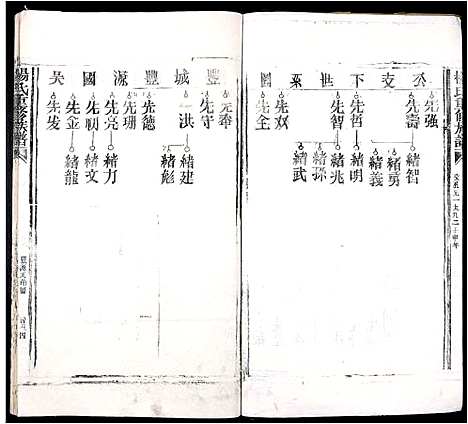 楊氏重修族譜
丕支下世系圖
先強
先壽 緒智
緒勇
緒義
先哲 緒明
先智 緒兆
緒孫
先奴 緒武
先全
豐城豐源國吳
元奉
先守
一洪 緒建
先德 緒彪
先珊
先亮 緒力
先明 緒文
先金 緒龍
先发
楊氏重修族譜